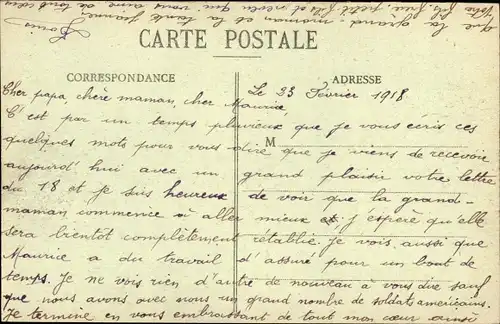 CARTE POSTALE
CORRESPONDANCE
ADRESSE
Le 23 Février 1918.
Cher papa, chère maman, cher Maurice,
C'est par un temps pluvieux que je vous écris ces
M
quelques mots pour vous dire que je viens de recevoir
aujourd'hui avec un grand plaisir votre lettre
du 18 et je suis heureux de voir que la grand-
maman commence à aller mieux et j'espère qu'elle
sera bientôt complètement rétablie. Je vois aussi que
Maurice a du travail d'assuré pour un bout de
temps. Je ne vois rien d'autre de nouveau à vous dire sauf
que nous avons avec nous un grand nombre de soldats américains.
Je termine en vous embrassant de tout mon cœur ainsi
que la grand-maman et la tante Jeanne.
Votre fils, frère, petit-fils et neveu qui vous aime
Louis